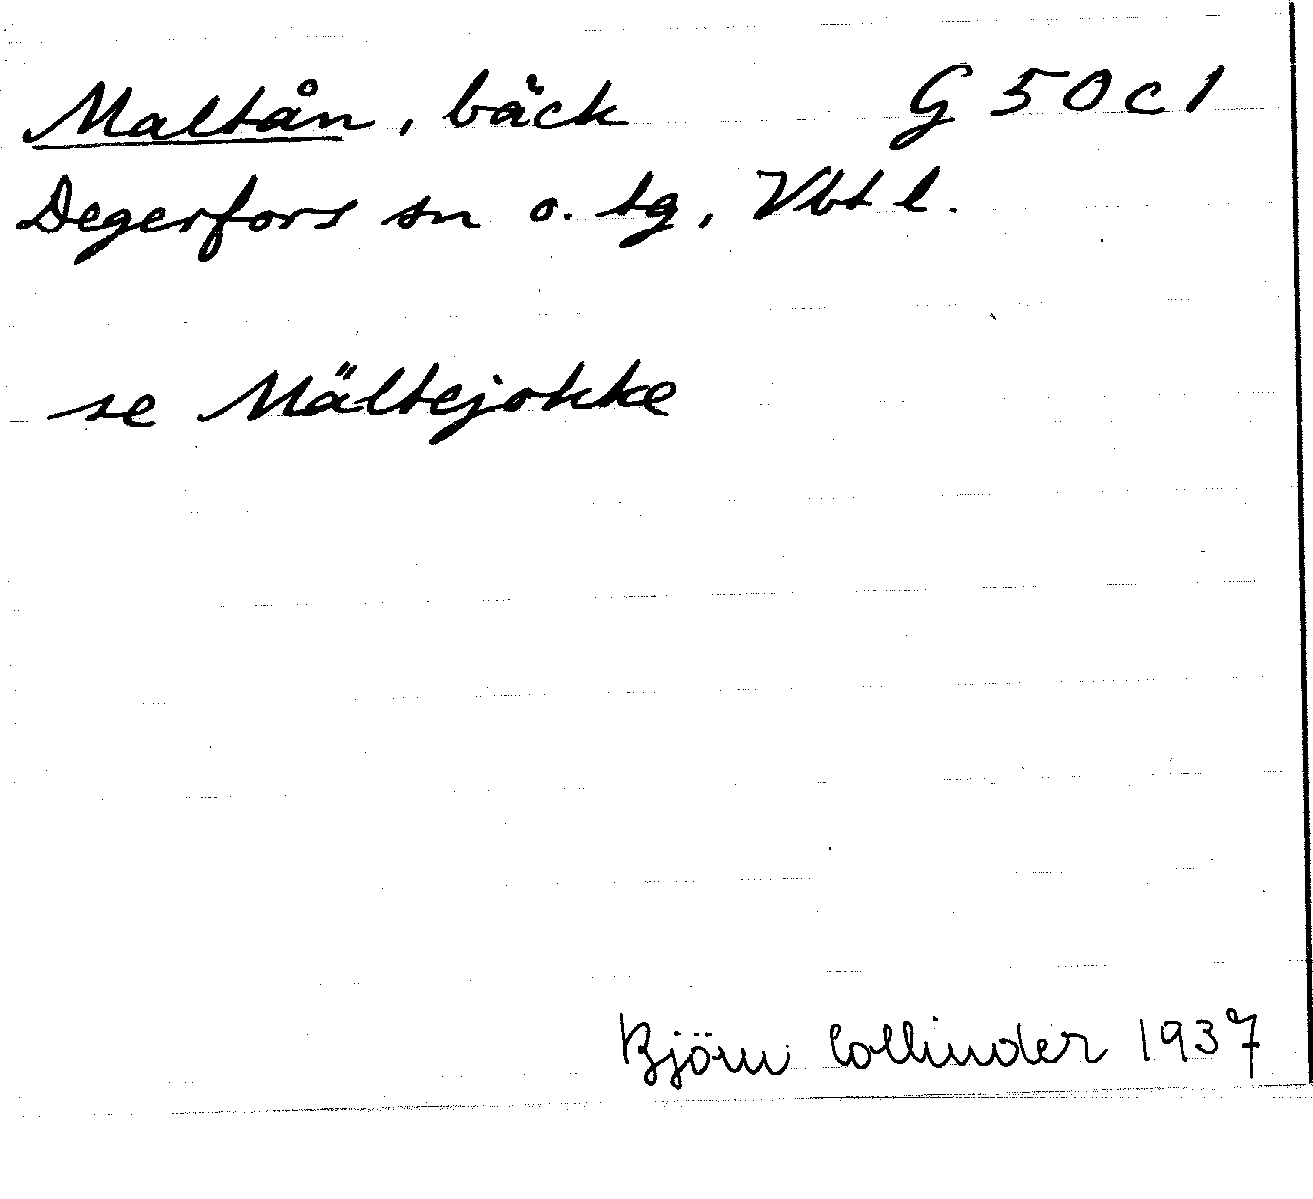 Maltån, bäck G 50 c 1
Degerfors sn o. tg, Vbt l.
se Mältejokke
Björn Collinder 1937